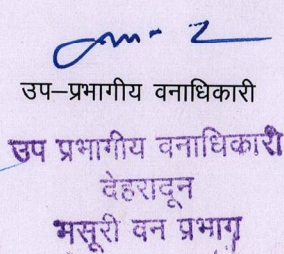 उप–प्रभागीय वनाधिकारी
उप प्रभागीय वनाधिकारी
देहरादून
मसूरी वन प्रभाग